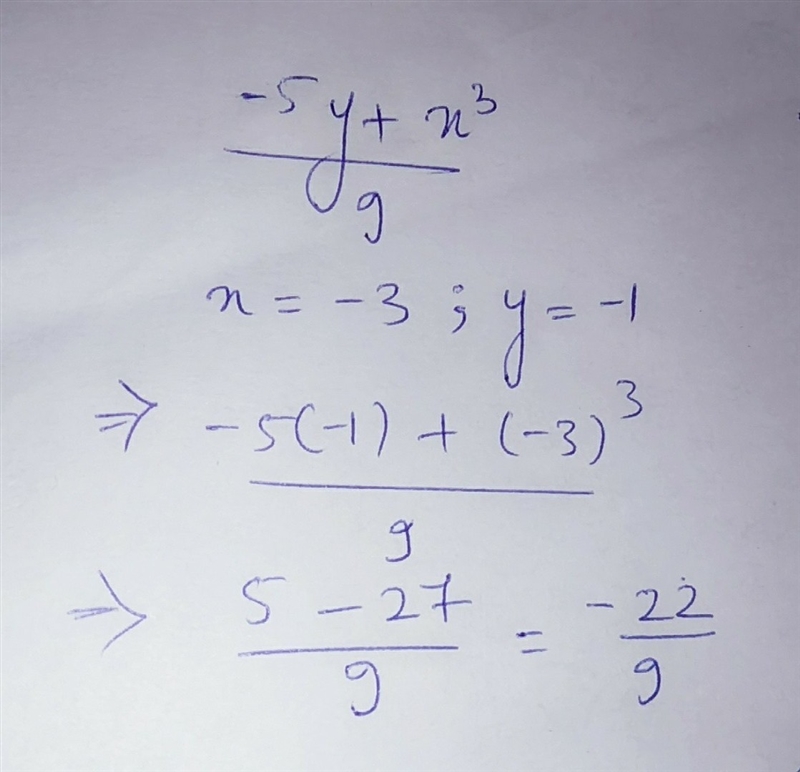 -5y + x³
9
x = -3 ; y = -1
⇒ -5(-1) + (-3)³
9
⇒ 5 - 27 = -22
9 9